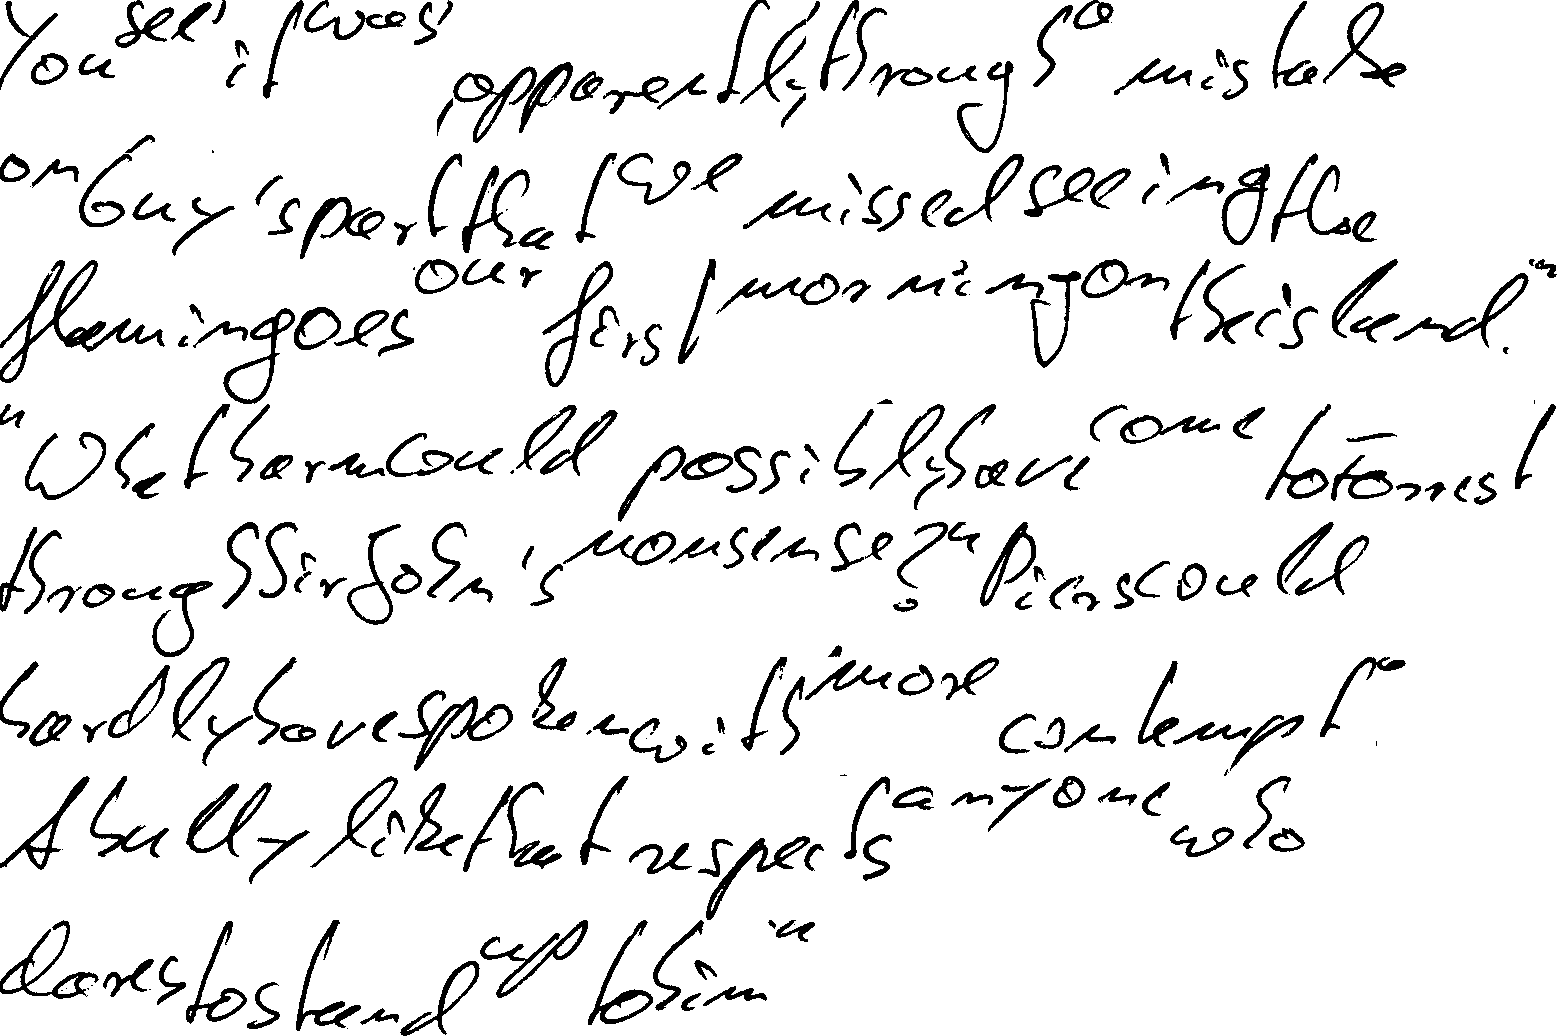 You see, it was, apparently, through a mistake
on Guy's part that we missed seeing the
flamingoes our first morning on the island."
"What harm could possibly have come to Ernest
through Sir John's nonsense?" Piers could
hardly have spoken with more contempt "
A bully like that respects anyone who
dares to stand up to him "